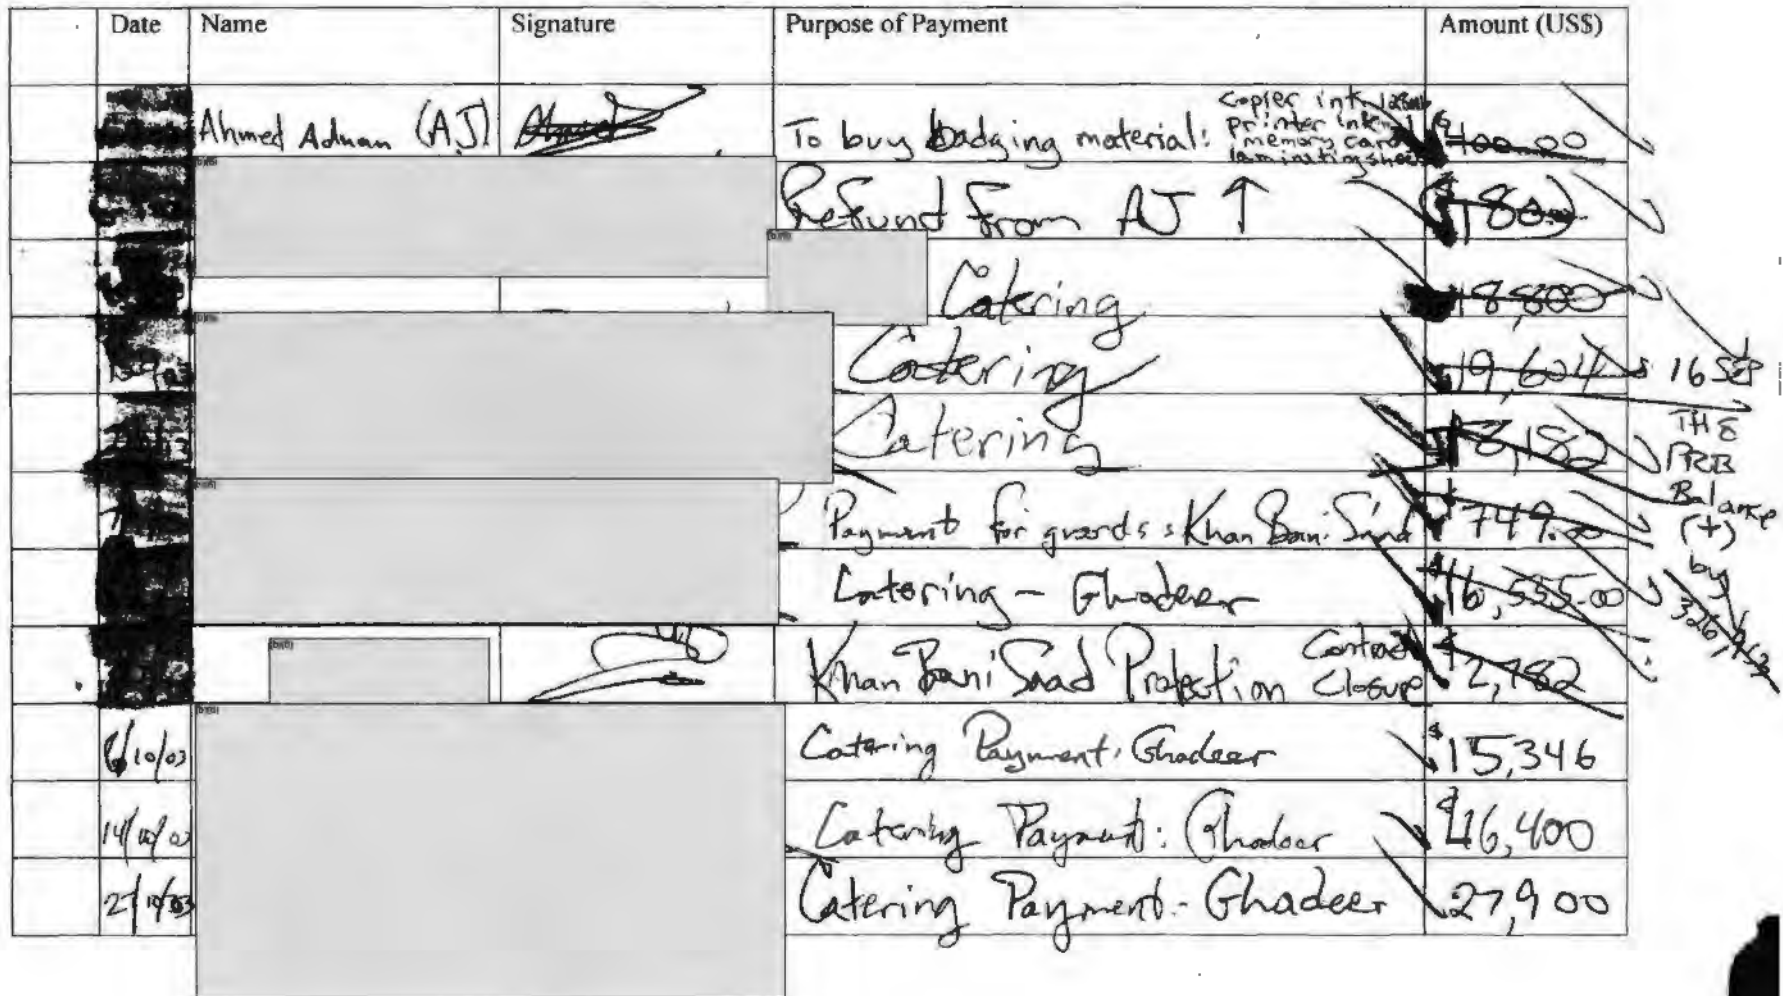 Date Name Signature Purpose of Payment Amount (US$)
Ahmed Adnan (AJ) To buy badging material: copier ink printer ink memory card laminating sheets $400.00
(b)(6)
Refund from AJ ↑ (180.)
(b)(6)
Catering 18,800
(b)(6)
Catering $19,604 16 SEP
Catering $18,182 THE
PRB
Balance
(+)
by
(b)(6)
Payment for guards: Khan Bani Saad $749.00
Catering - Ghadeer $16,555.00
(b)(6) Khan Bani Saad Protection Contract Closure $2,782
(b)(6)
6/10/03 Catering Payment: Ghadeer $15,346
14/10/03 Catering Payment: Ghadeer $16,400
Catering Payment - Ghadeer 27,900